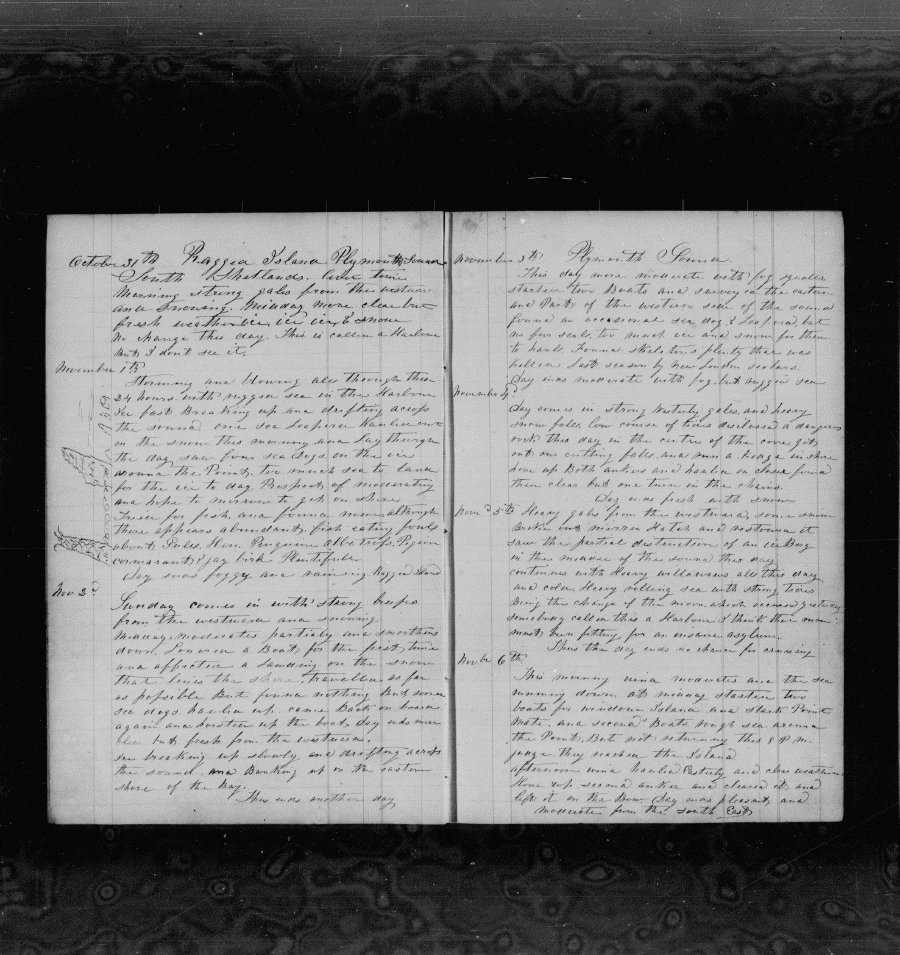 October 31th Ragged Island Plymouth Sound
South Shetlands.
Morning strong gales from the westward
and snowing. Midday more clear but
fresh ice ice ice, & snow
No change this day. This is called a Harbour
But I dont see it.
November 1th
Storming and blowing also through these
24 hours with rugged sea in the Harbour
Ice fast Breaking up and drifting across
the sound one sea Leopard hauled out
on the snow this morning and Lay through
the day saw four sea Dogs on the ice
around the Point, too much sea to land
for the ice to day Prospect of moderating
and hope to morrow to get on shore
Tried for fish and found none although
there appears abundant, fish eating fowls
about, Gulls, Hen, Penguins Albatross, Pigeon
cormorant & jay bird Plentiful.
Day ends foggy and raining Ragged Island
Nov 2d
Sunday comes in with strong breeze
from the westward and snowing
Midday moderates partialy and smoothens
down. Lowered a Boat, for the first time
and affected a Landing on the snow
that lines the shore, travelled as far
as possible But found nothing But some
sea dogs hauled up, came Back on board
again and hoisted up the boat, Day ends more
clear but fresh from the westward.
Ice breaking up slowly and drifting across
the sound and Banking up on the eastern
shore of the bay.
Thus ends another day
November 3th Plymouth Sound
This day more moderate with fog squalls
started two Boats and surveyed the eastern
and Part of the western side of the sound
found an occasional sea dog & Leopard, but
no fur seals, too much ice and snow for them
to haul. Found skeletons plenty that was
killed last season by New London sealers.
Day ends moderate with fog, but rugged sea
November 4d
Day comes in strong Westerly gales and heavy
snow falls, low course of tides disclosed a dangerous
rock this day in the centre of the cove, got
out our cutting falls and run a hedge in shore
hove up Both ankers and hauled in shore found
them clear but one turn in the chains.
Day ends fresh with snow
Novr 5th Heavy gales from the westward, some snow
Broke out Mizzen Hatch and restowed it
saw the partial distruction of an ice Burg
in the middle of the sound this day
continues with Heavy willawaus all this day
and cold, Heavy rolling sea with strong tides
Being the change of the moon which accured yesterday
somebody called this a Harbour I think that man
must been fitting for an insane asylum.
Thus the day ends no chance for cruising
Novbr 6th
This morning wind moderates and the sea
running down, at midday started two
boats for window Island and Start Point
Mate, and second Boats, rough sea around
the Point, But not returning this 8 P.M.
judge they reached the Island
afternoon wind hauled Easterly and clear weather
Hove up second anker and cleared it, and
left it on the Bow Day ends pleasant, and
moderate from the South East